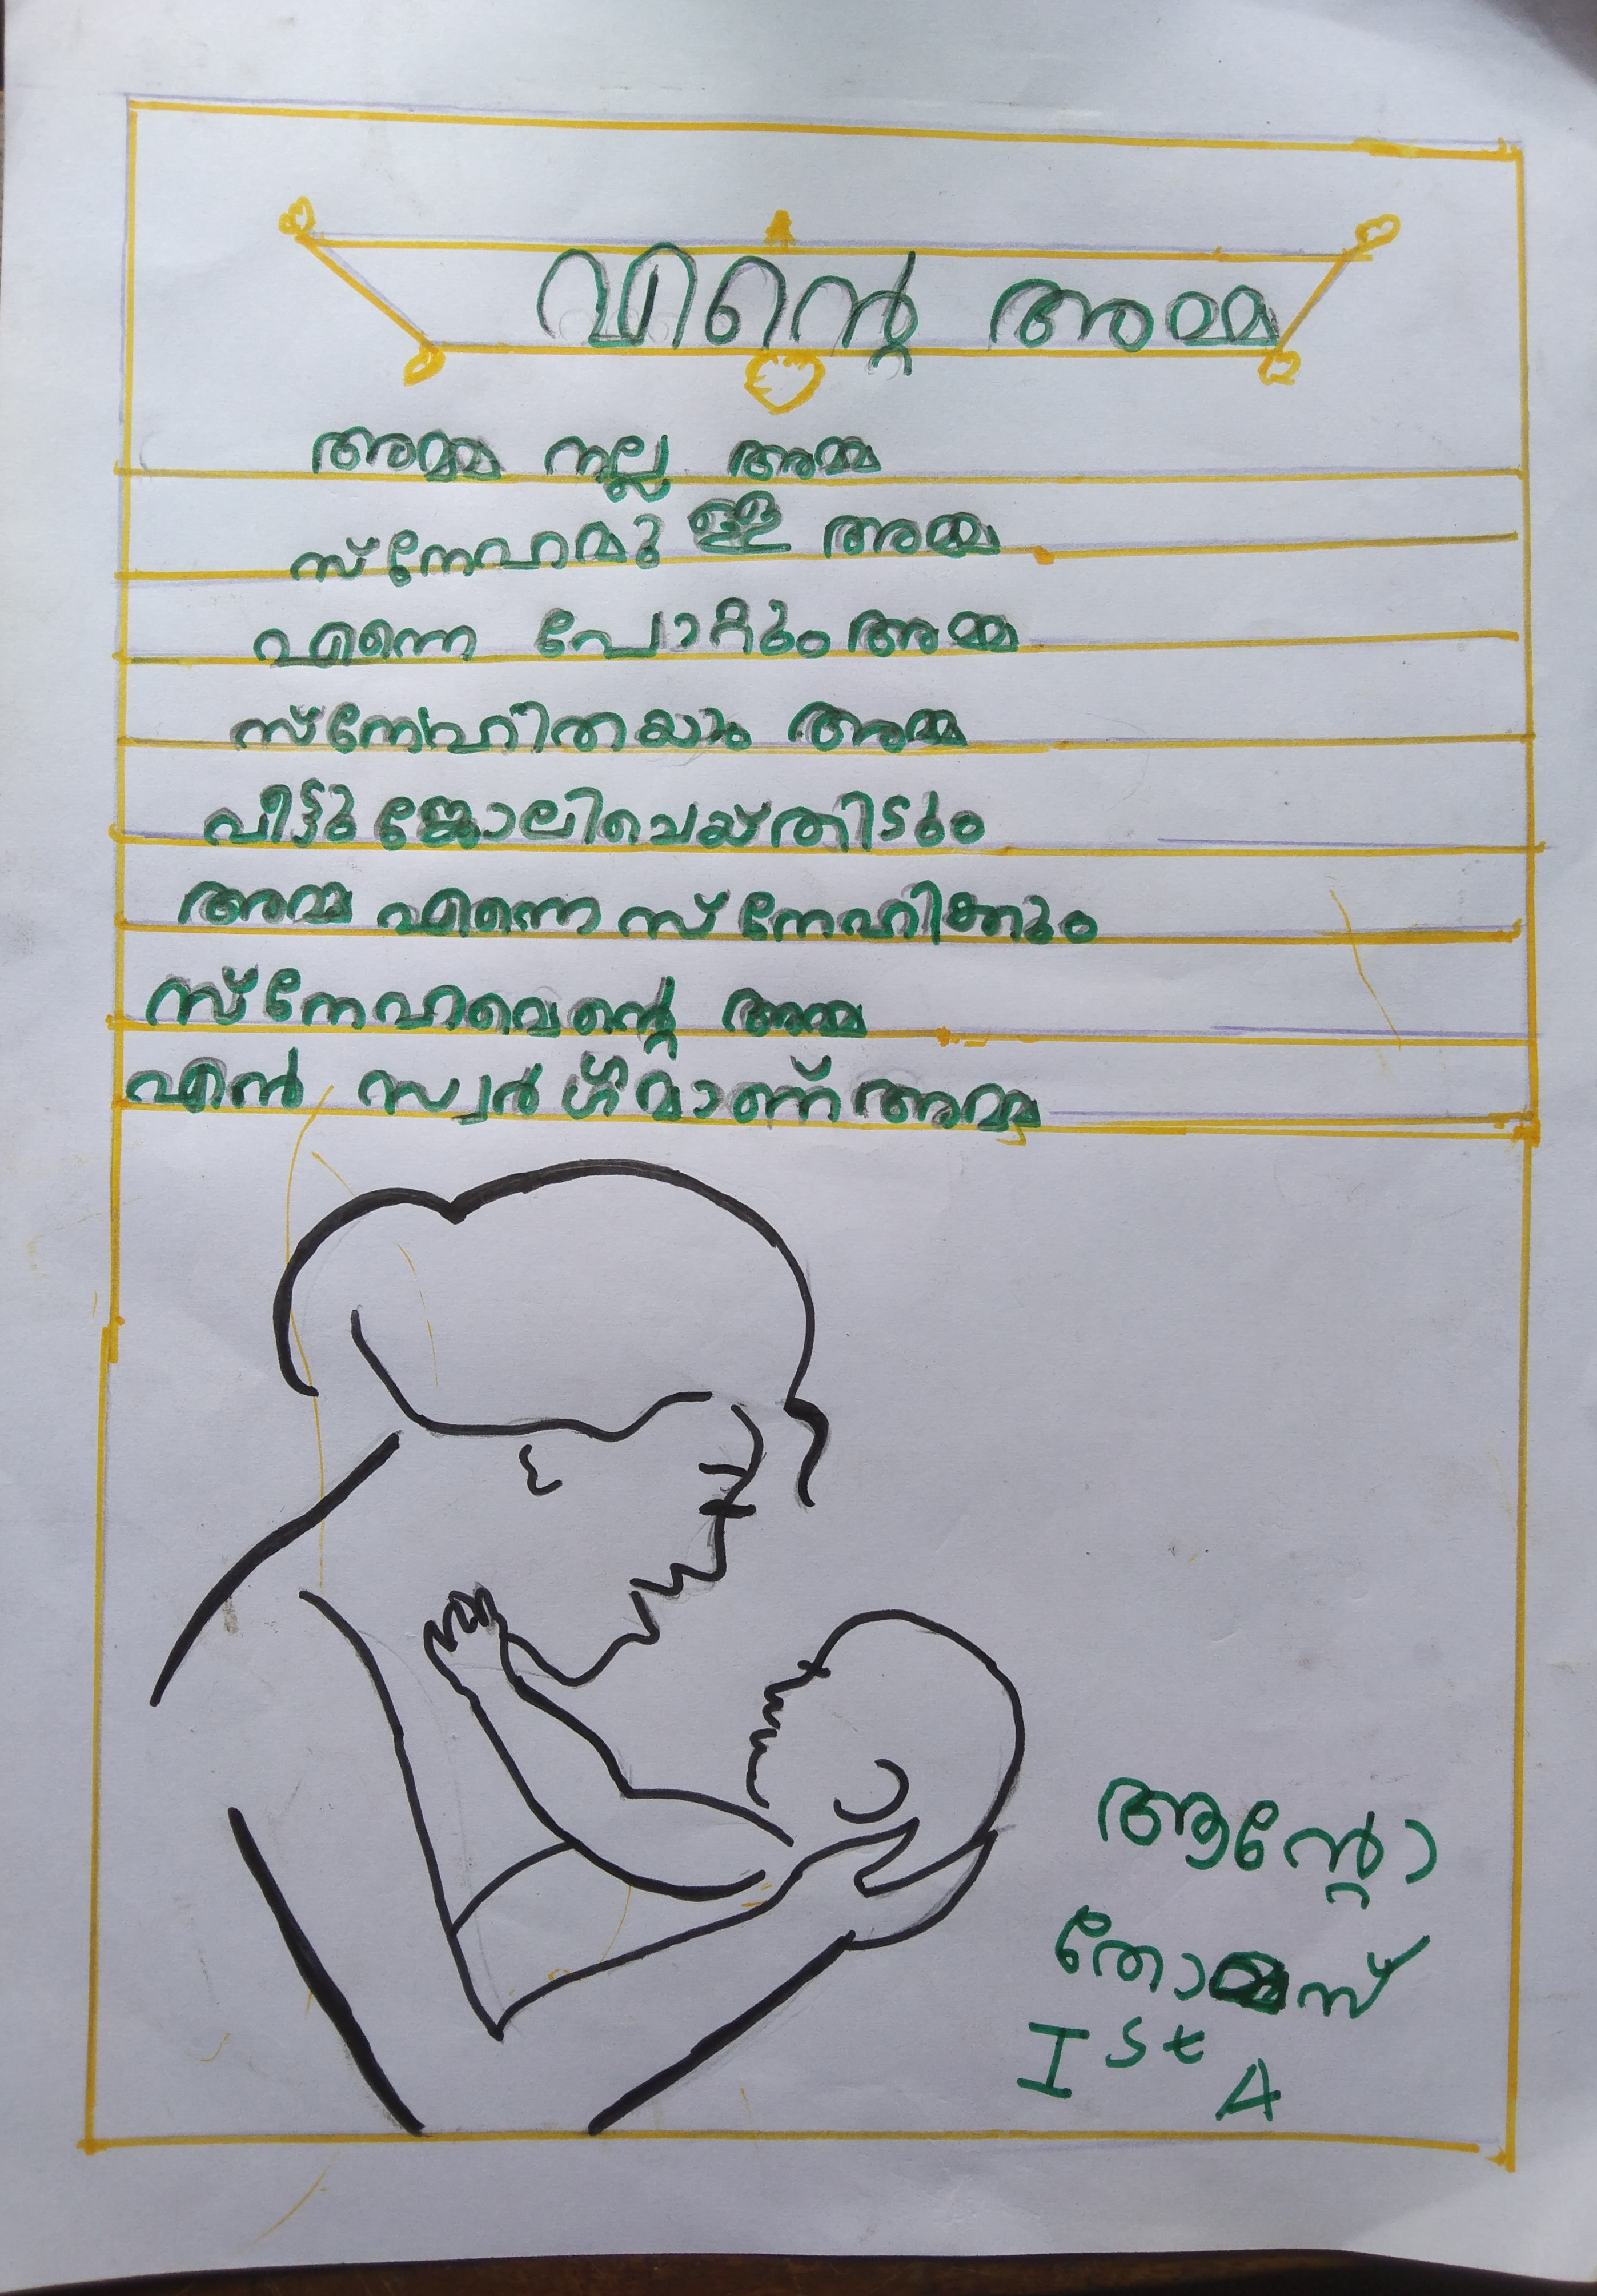 എന്റെ അമ്മ
അമ്മ നല്ല അമ്മ
സ്നേഹമുള്ള അമ്മ
എന്നെ പോറ്റും അമ്മ
സ്നേഹിതയും അമ്മ
വീട്ടുജോലിചെയ്തിടും
അമ്മ എന്നെ സ്നേഹിക്കും
സ്നേഹവെന്റെ അമ്മ
എൻ സ്വർഗ്ഗമാണ് അമ്മ
ആന്റോ
തോമ്മസ്
I St A